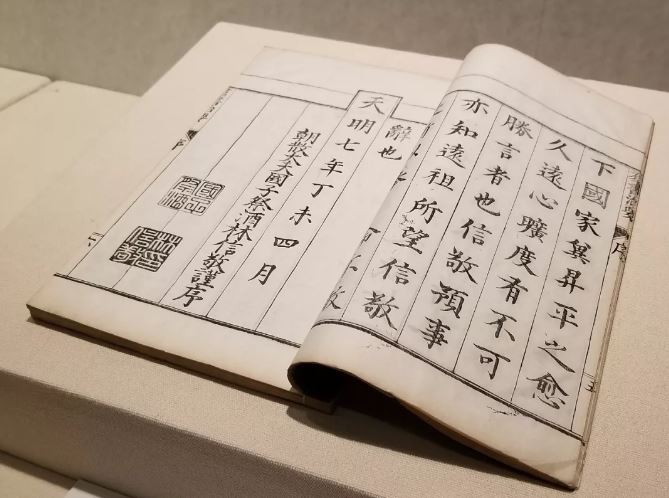 下國家冀昇平之愈
久遠心曠度有不可
勝言者也信敬預事
亦知遠祖所望信敬
辭也
天明七年丁未四月
朝散大夫國子祭酒林信敬謹序
林信敬印